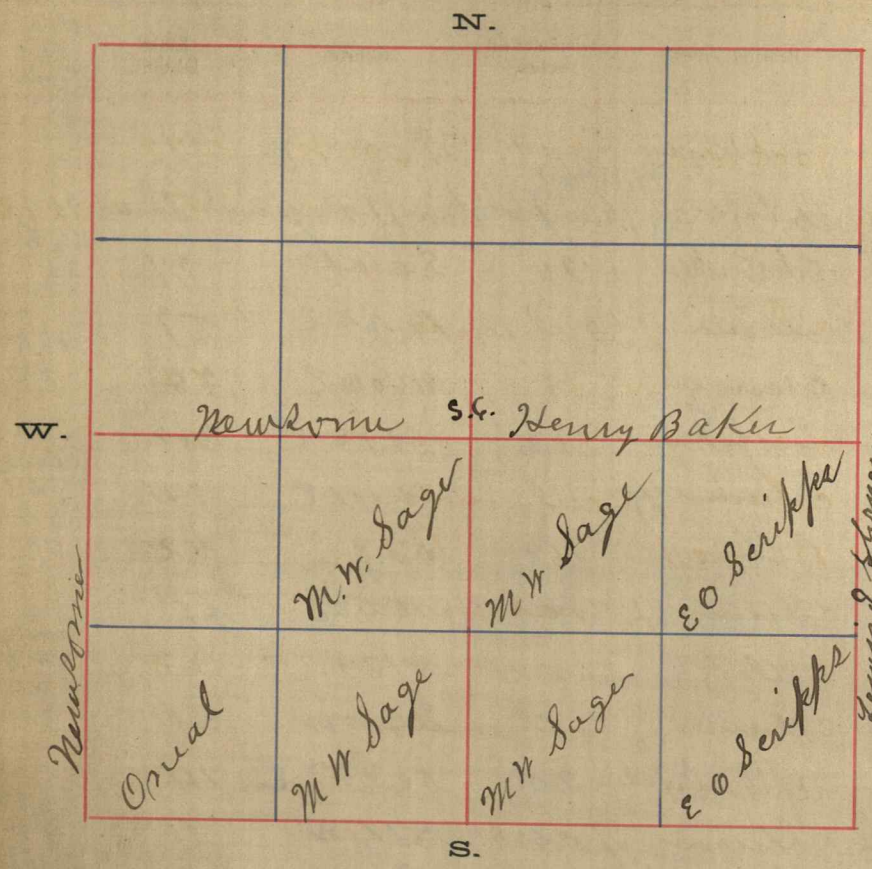 N.
W.
Newsome S.C. Henry Baker
M.W. Sage
M W Sage
E O Scripps
Newsome
M W Sage
M W Sage
E O Scripps
S.